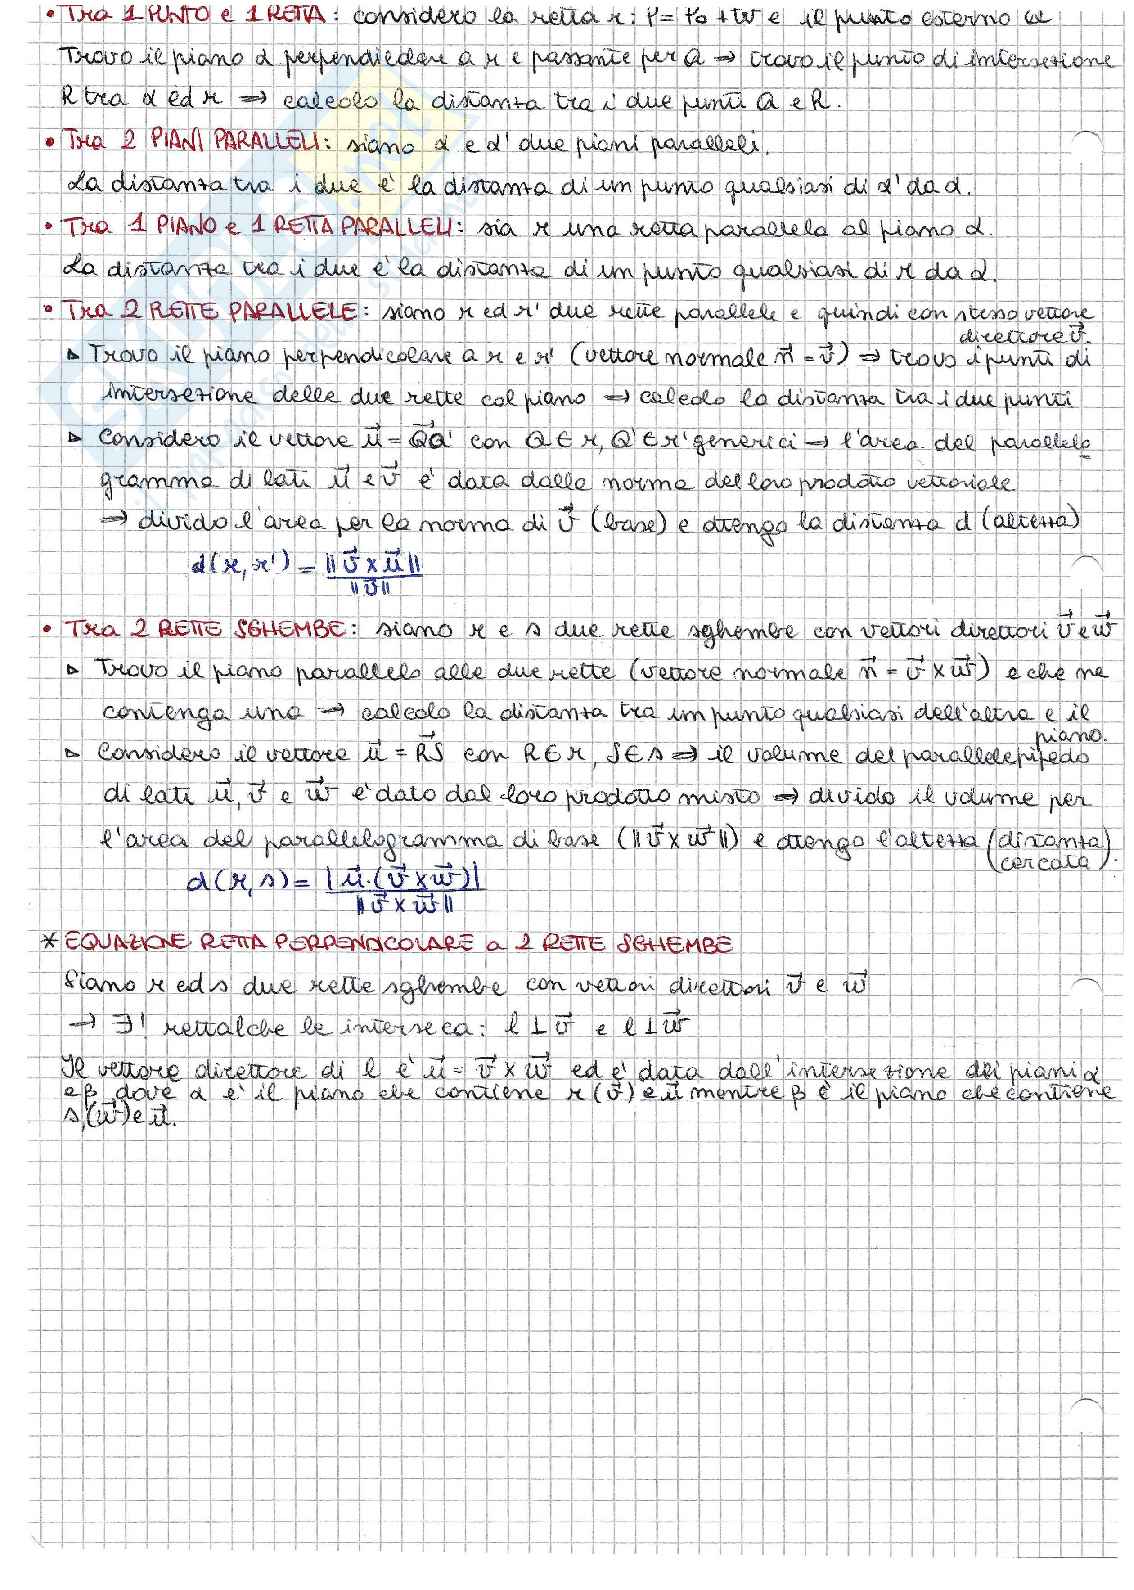 • Tra 1 PUNTO e 1 RETTA: considero la retta r: P = P₀ + tv e il punto esterno Q
Trovo il piano α perpendicolare a r e passante per Q ⇒ trovo il punto di intersezione
R tra α ed r ⇒ calcolo la distanza tra i due punti Q e R.
• Tra 2 PIANI PARALLELI: siano α e α' due piani paralleli.
La distanza tra i due è la distanza di un punto qualsiasi di α' da α.
• Tra 1 PIANO e 1 RETTA PARALLELI: sia r una retta parallela al piano α.
La distanza tra i due è la distanza di un punto qualsiasi di r da α.
• Tra 2 RETTE PARALLELE: siano r ed r' due rette parallele e quindi con stesso vettore
direttore v⃗.
▹ Trovo il piano perpendicolare a r e r' (vettore normale n⃗ = v⃗) ⇒ trovo i punti di
intersezione delle due rette col piano ⇒ calcolo la distanza tra i due punti
▹ Considero il vettore u⃗ = QQ'⃗ con Q ∈ r, Q' ∈ r' generici → l'area del parallelo
gramma di lati u⃗ e v⃗ è data dalla norma del loro prodotto vettoriale
⇒ divido l'area per la norma di v⃗ (base) e ottengo la distanza d (altezza)
d(r, r') = ||v⃗ × u⃗|| / ||v⃗||
• Tra 2 RETTE SGHEMBE: siano r e s due rette sghembe con vettori direttori v⃗ e w⃗
▹ Trovo il piano parallelo alle due rette (vettore normale n⃗ = v⃗ × w⃗) e che ne
contenga una → calcolo la distanza tra un punto qualsiasi dell'altra e il
piano.
▹ Considero il vettore u⃗ = RS⃗ con R ∈ r, S ∈ s ⇒ il volume del parallelepipedo
di lati u⃗, v⃗ e w⃗ è dato dal loro prodotto misto ⇒ divido il volume per
l'area del parallelogramma di base (||v⃗ × w⃗||) e ottengo l'altezza (distanza
cercata).
d(r, s) = |u⃗ · (v⃗ × w⃗)| / ||v⃗ × w⃗||
* EQUAZIONE RETTA PERPENDICOLARE a 2 RETTE SGHEMBE
Siano r ed s due rette sghembe con vettori direttori v⃗ e w⃗
→ ∃! retta l che le interseca: l ⊥ v⃗ e l ⊥ w⃗
Il vettore direttore di l è u⃗ = v⃗ × w⃗ ed è data dall'intersezione dei piani α
e β dove α è il piano che contiene r (v⃗) e u⃗ mentre β è il piano che contiene
s, (w⃗) e u⃗.